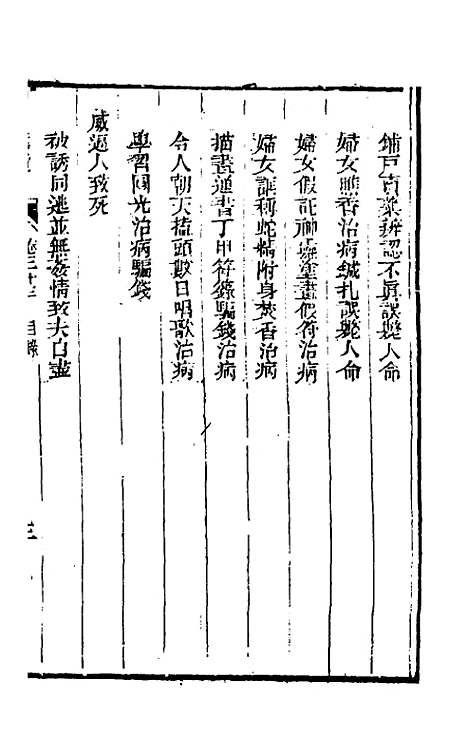 鋪戶賣藥辨認不眞誤斃人命
婦女瞧香治病鍼扎誤斃人命
婦女假託神鬼塗畫假符治病
婦女誑稱蛇精附身焚香治病
描畫道書丁甲符籙騙錢治病
令人朝天磕頭數日唱歌治病
學習圓光治病騙錢
威逼人致死
被誘同逃並無姦情致夫自盡
卷三十三 目錄
三